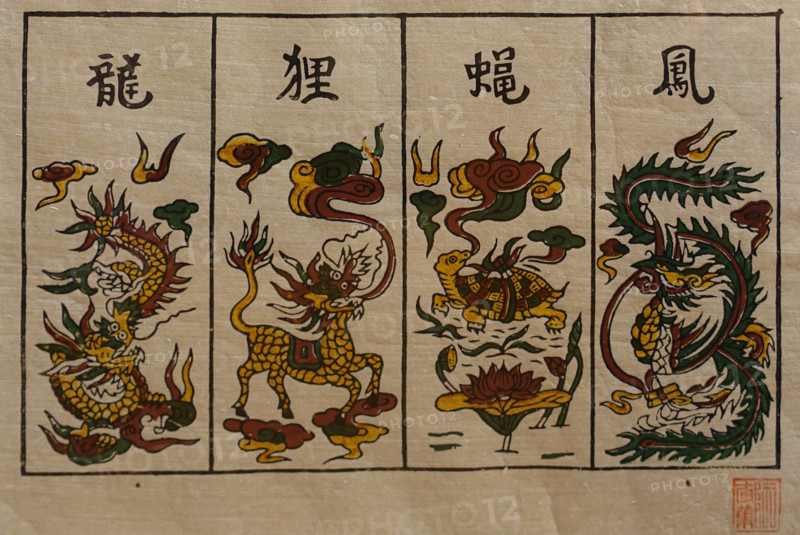 龍 狸 蝇 鳳
PHOTO12